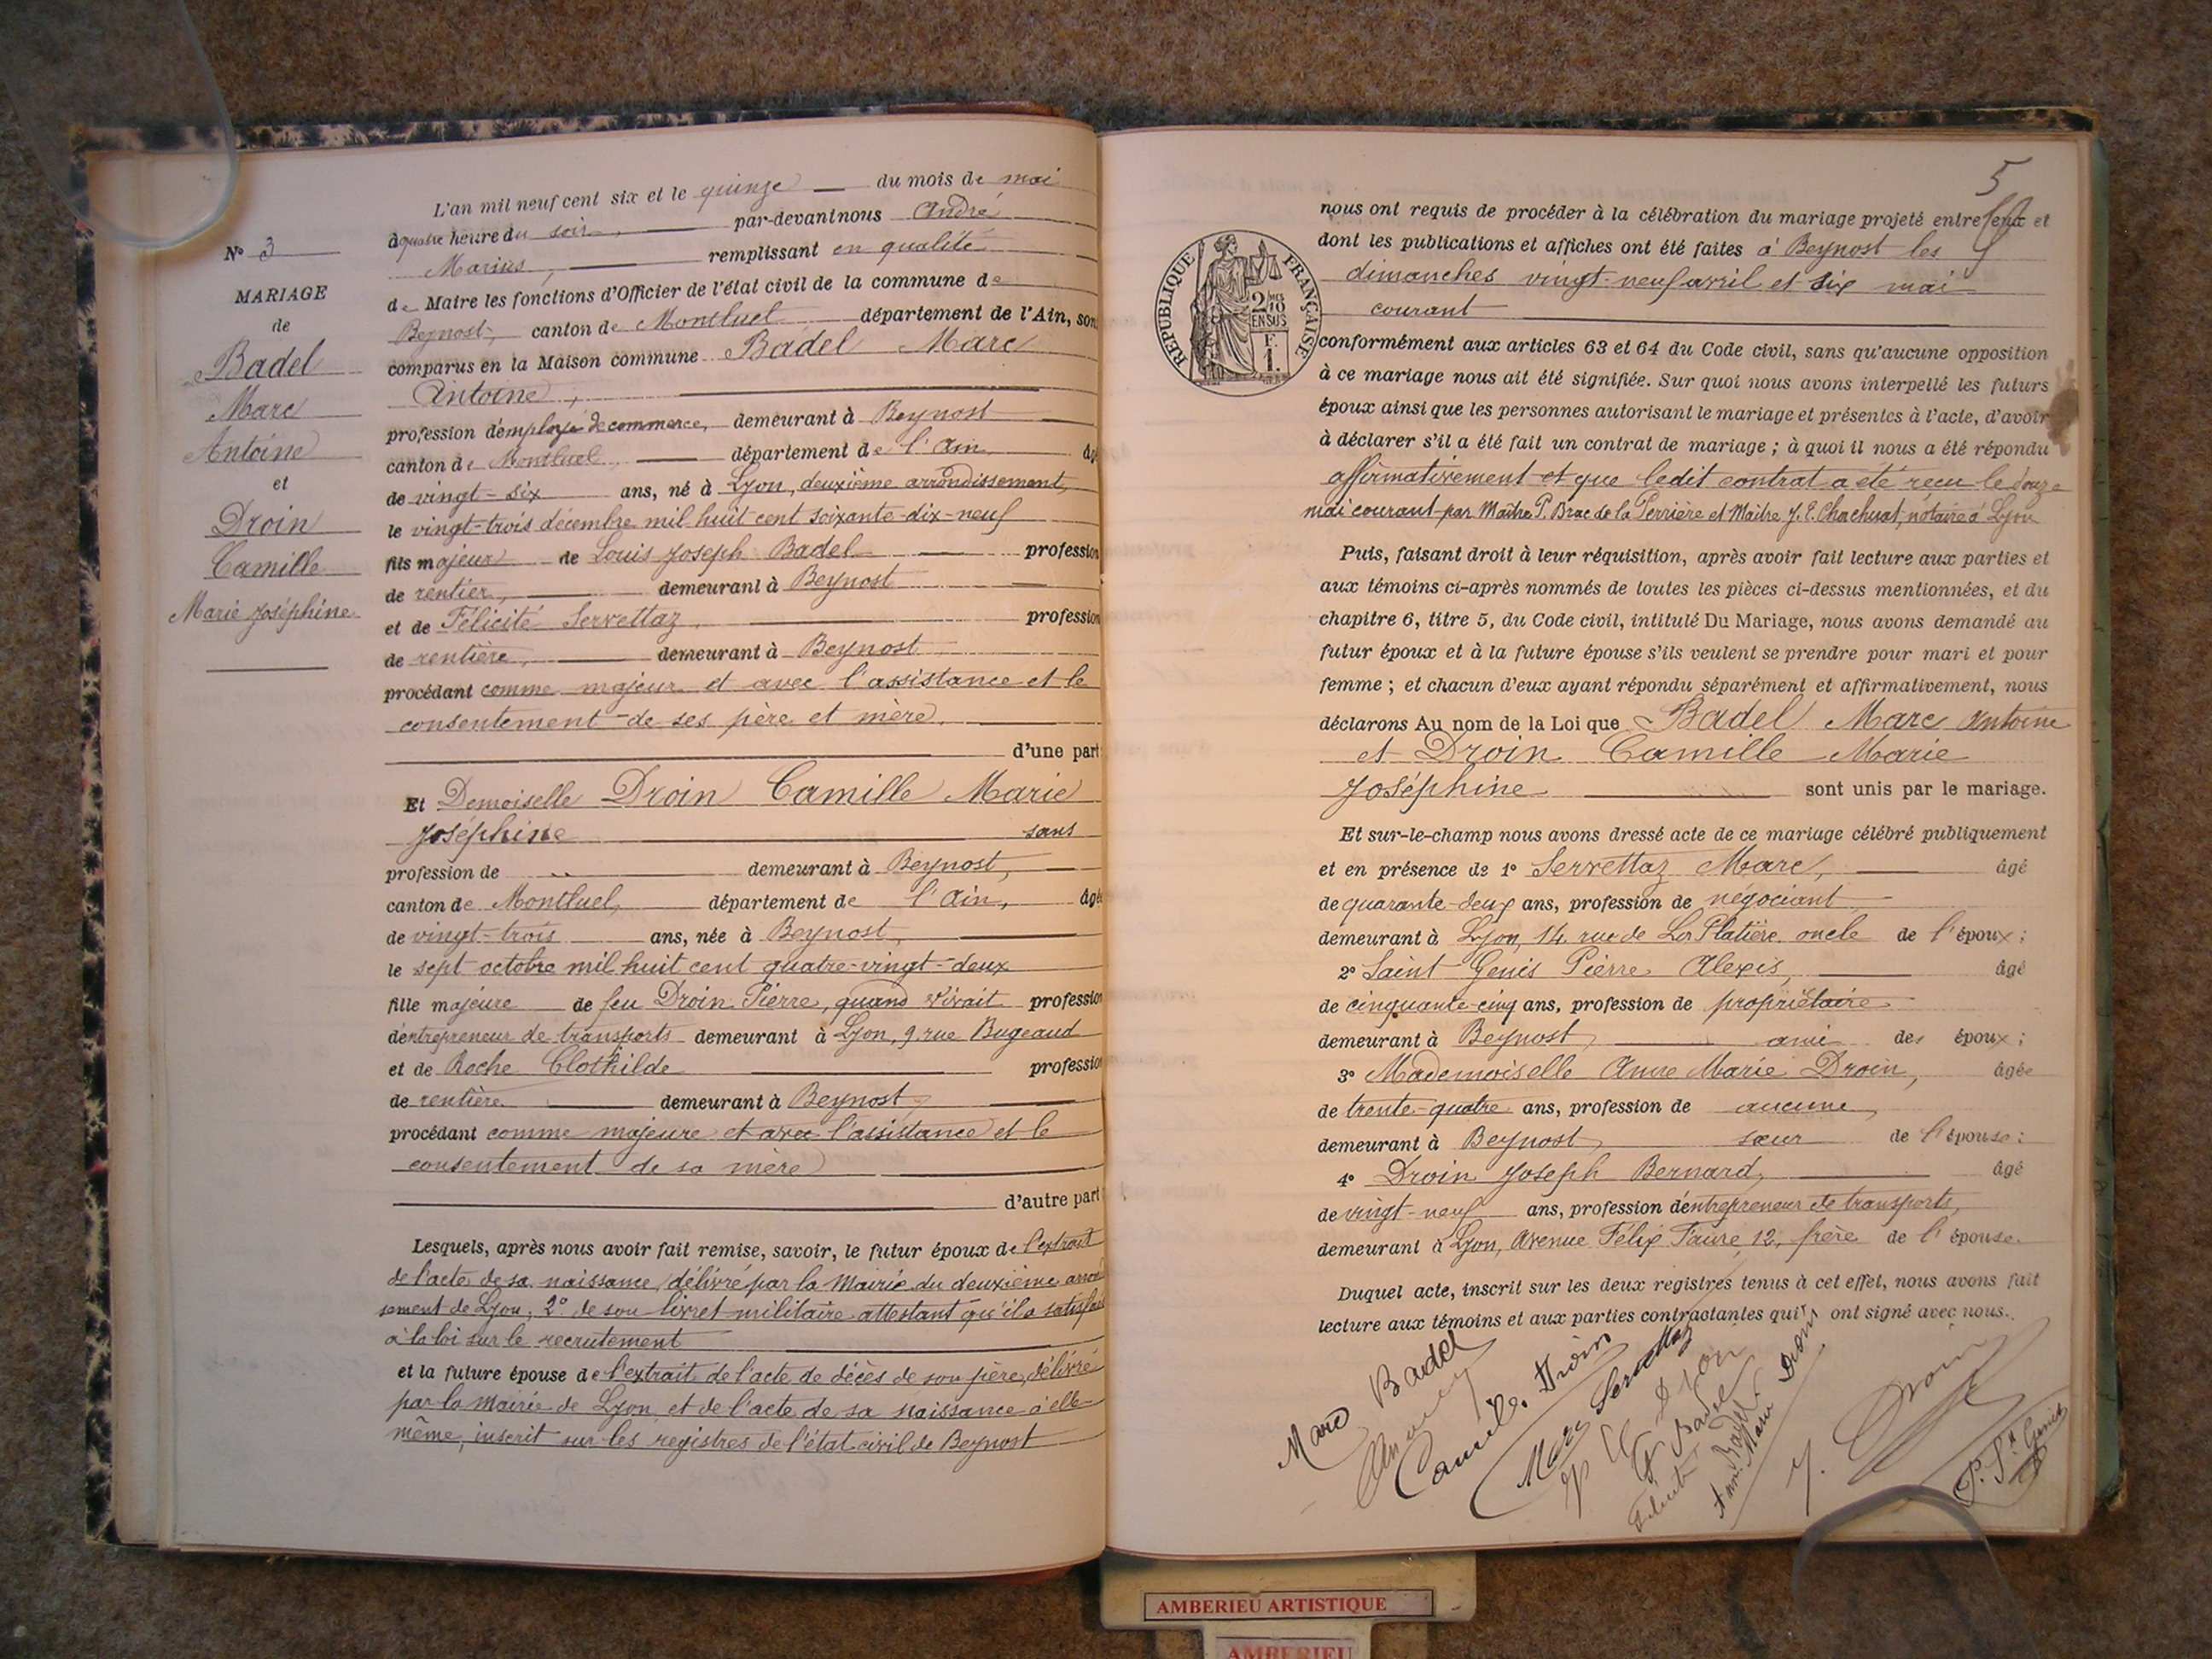 N° 3
MARIAGE
de
Badel
Marc
Antoine
et
Droin
Camille
Marie Joséphine
L'an mil neuf cent six et le quinze du mois de mai
à quatre heure du soir, par-devant nous André
Marius, remplissant en qualité
de Maire les fonctions d'Officier de l'état civil de la commune de
Beynost, canton de Montluel département de l'Ain, sont
comparus en la Maison commune Badel Marc
Antoine,
profession d'employé de commerce, demeurant à Beynost
canton de Montluel, département de l'Ain âgé
de vingt-six ans, né à Lyon, deuxième arrondissement,
le vingt-trois décembre mil huit cent soixante-dix-neuf
fils majeur de Louis Joseph Badel profession
de rentier, demeurant à Beynost
et de Félicité Servettaz profession
de rentière, demeurant à Beynost
procédant comme majeur et avec l'assistance et le
consentement de ses père et mère.
d'une part
Et Demoiselle Droin Camille Marie
Joséphine sans
profession de demeurant à Beynost,
canton de Montluel, département de l'Ain, âgée
de vingt-trois ans, née à Beynost,
le sept octobre mil huit cent quatre-vingt-deux
fille majeure de feu Droin Pierre, quand vivait profession
d'entrepreneur de transports demeurant à Lyon, 9 rue Bugeaud
et de Roche Clothilde profession
de rentière demeurant à Beynost,
procédant comme majeure et avec l'assistance et le
consentement de sa mère
d'autre part
Lesquels, après nous avoir fait remise, savoir, le futur époux de l'extrait
de l'acte de sa naissance, délivré par la Mairie du deuxième arron
sement de Lyon; 2° de son livret militaire attestant qu'il a satisfait
à la loi sur le recrutement
et la future épouse de l'extrait de l'acte de décès de son père, délivré
par la Mairie de Lyon et de l'acte de sa naissance à elle-
même, inscrit sur les registres de l'état civil de Beynost
5
nous ont requis de procéder à la célébration du mariage projeté entre eux et
dont les publications et affiches ont été faites à Beynost les
dimanches vingt-neuf avril et six mai
courant
RÉPUBLIQUE FRANÇAISE
2/10 EN SUS
F. 1.
conformément aux articles 63 et 64 du Code civil, sans qu'aucune opposition
à ce mariage nous ait été signifiée. Sur quoi nous avons interpellé les futurs
époux ainsi que les personnes autorisant le mariage et présentes à l'acte, d'avoir
à déclarer s'il a été fait un contrat de mariage; à quoi il nous a été répondu
affirmativement et que ledit contrat a été reçu le douze
mai courant par Maître P. Brac de la Perrière et Maître J. E. Chachuat, notaire à Lyon
Puis, faisant droit à leur réquisition, après avoir fait lecture aux parties et
aux témoins ci-après nommés de toutes les pièces ci-dessus mentionnées, et du
chapitre 6, titre 5, du Code civil, intitulé Du Mariage, nous avons demandé au
futur époux et à la future épouse s'ils veulent se prendre pour mari et pour
femme; et chacun d'eux ayant répondu séparément et affirmativement, nous
déclarons Au nom de la Loi que Badel Marc Antoine
et Droin Camille Marie
Joséphine sont unis par le mariage.
Et sur-le-champ nous avons dressé acte de ce mariage célébré publiquement
et en présence de 1° Servettaz Marc, âgé
de quarante-deux ans, profession de négociant
demeurant à Lyon, 14 rue de La Platière oncle de l'époux;
2° Saint-Genis Pierre Alexis, âgé
de cinquante-cinq ans, profession de propriétaire
demeurant à Beynost, ami des époux;
3° Mademoiselle Anne Marie Droin, âgée
de trente-quatre ans, profession de aucune,
demeurant à Beynost, sœur de l'épouse;
4° Droin Joseph Bernard, âgé
de vingt-neuf ans, profession d'entrepreneur de transports,
demeurant à Lyon, Avenue Félix Faure, 12, frère de l'épouse.
Duquel acte, inscrit sur les deux registres tenus à cet effet, nous avons fait
lecture aux témoins et aux parties contractantes qui ont signé avec nous.
Marc Badel
Camille Droin
Marc Servettaz
Droin
Badel
J. Droin
P. St Genis
AMBERIEU ARTISTIQUE
AMBERIEU